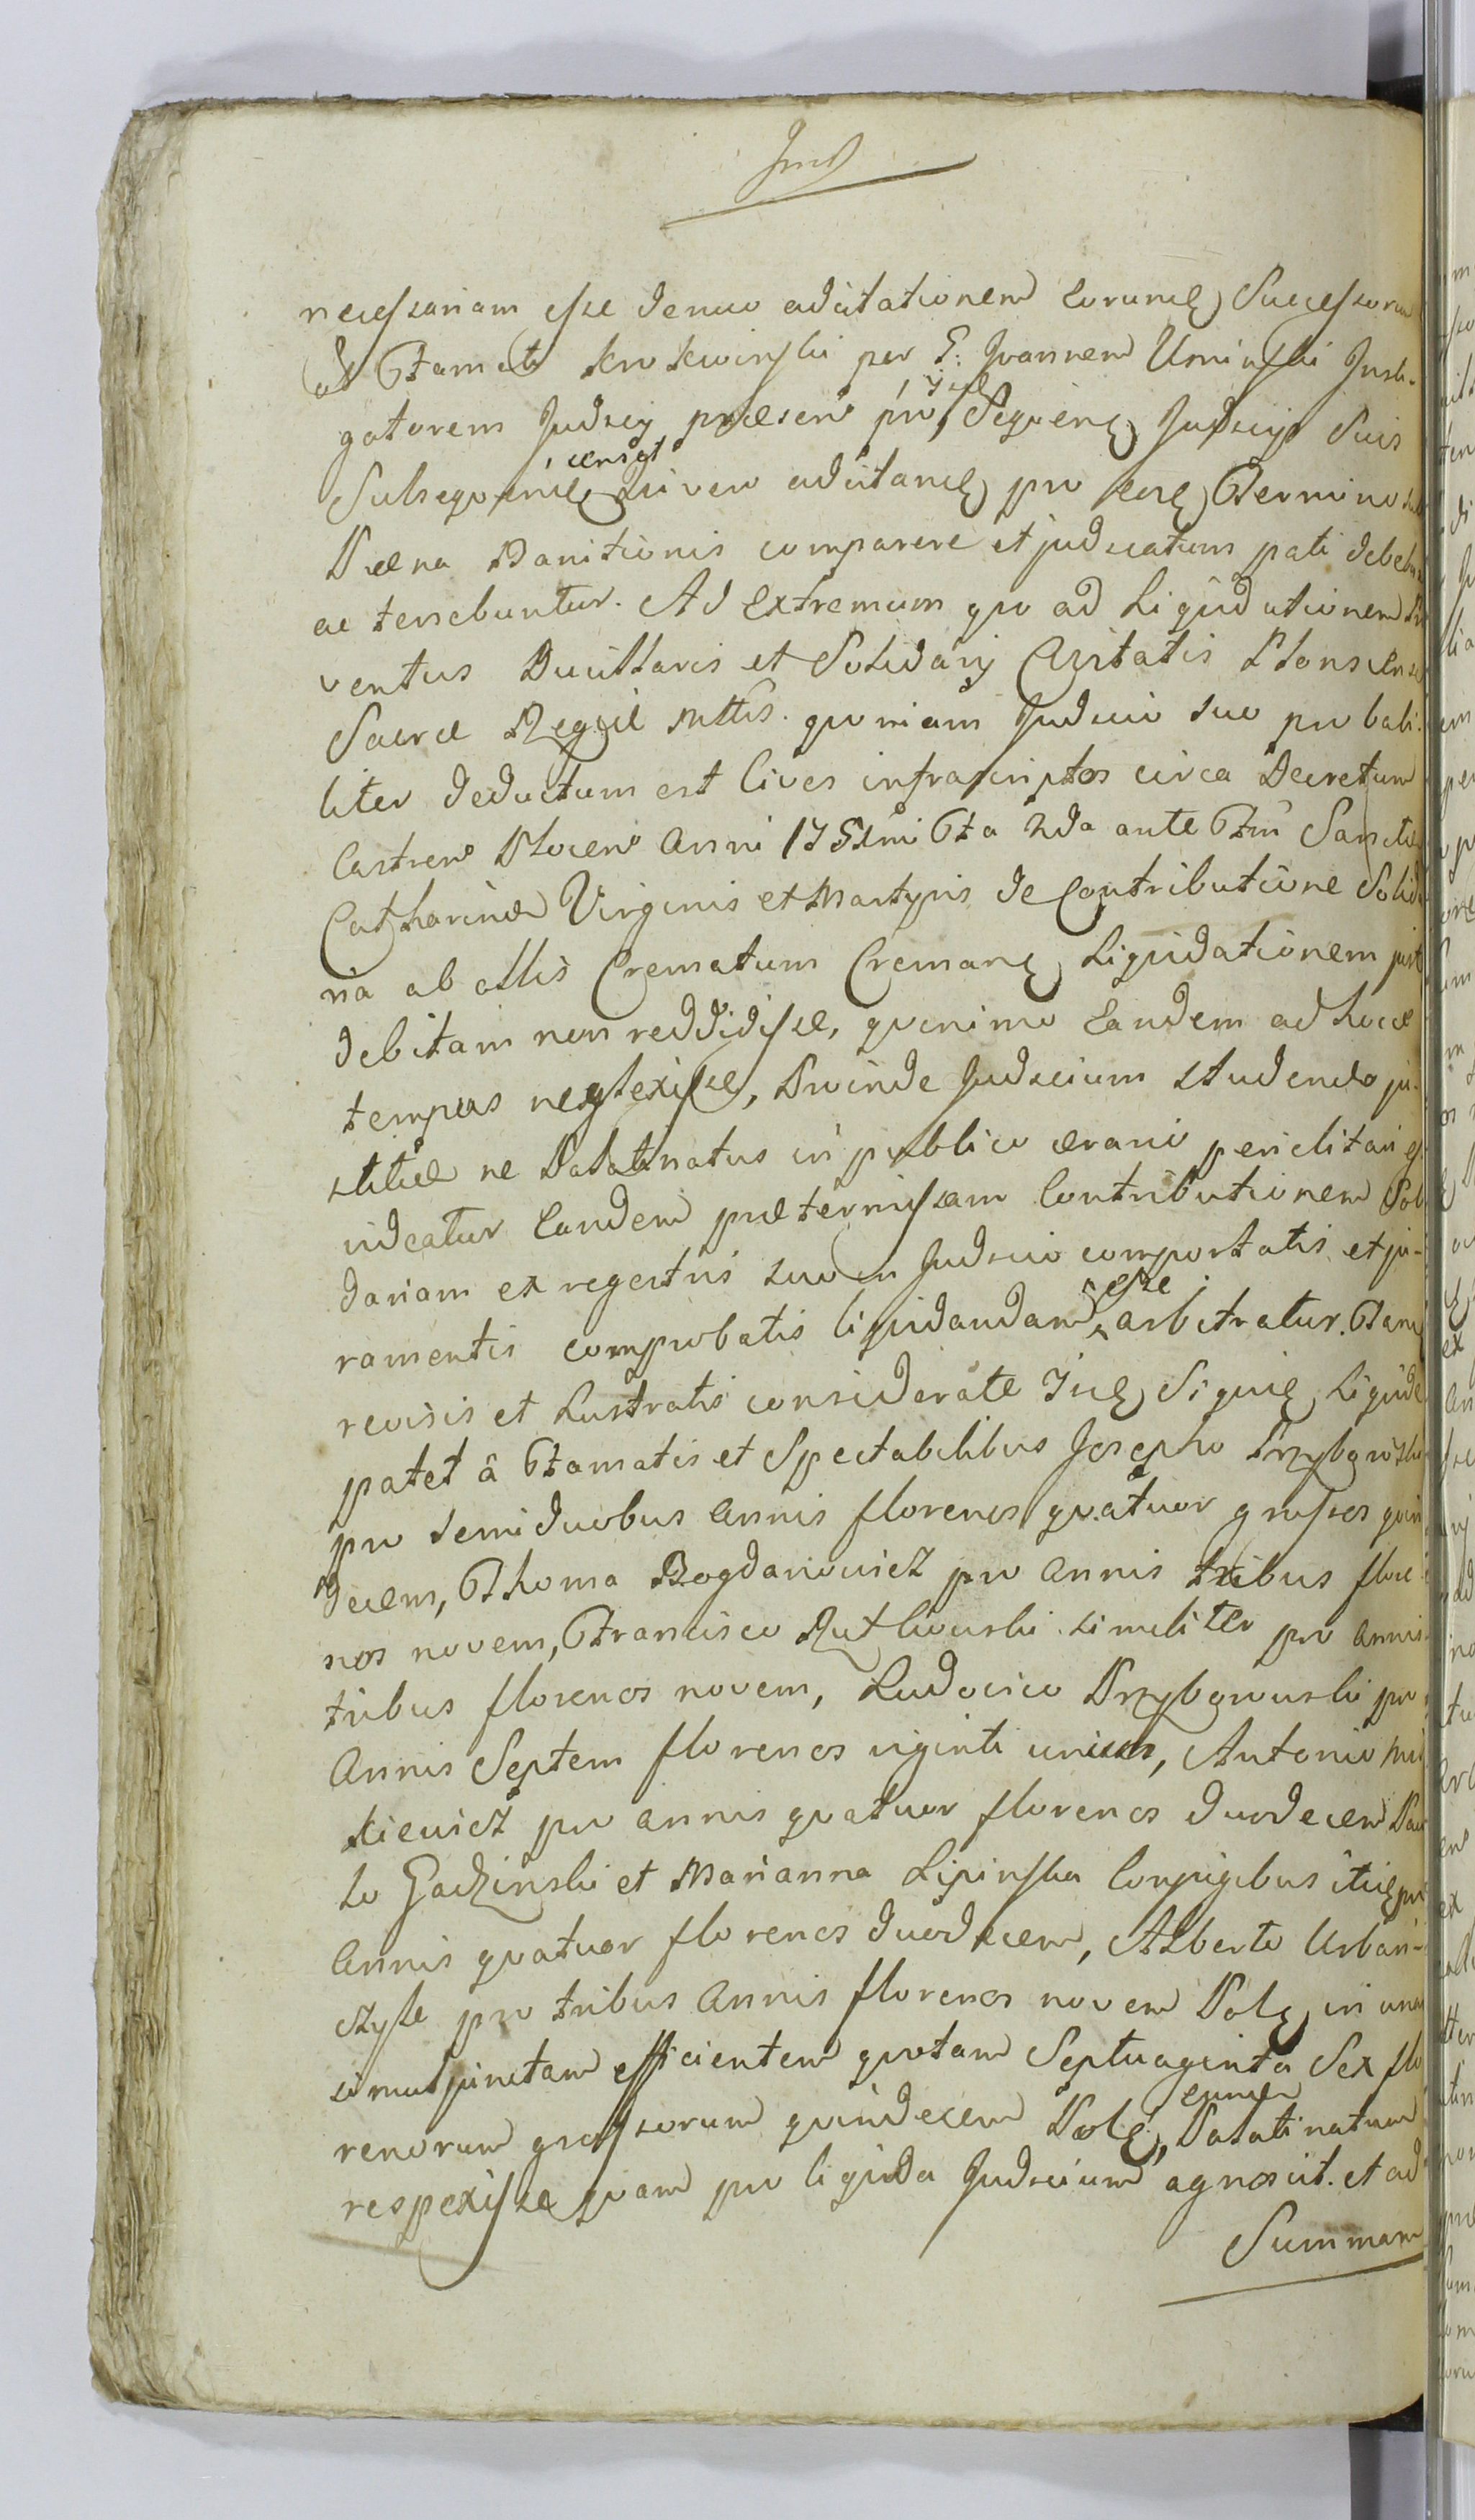 necessariam esse denuo adcitationem eorumq Successorum
Famati Krokowiński per G: Joannem Umiński Insti-
gatorem Judicij praesen pro Seqvenq Judicijs Suis
Subseqvenq vero adcitandq pro Termino
Paena Banitionis comparere et judicatum pati debebunt
ac tenebuntur. Ad Extremum qvo ad Liqvidationem
ventus Ducillaris et Solidarij Civitatis Plonscensis
Sacrae Regiae Mttis. qvoniam Judicio suo probabi-
liter deductum est Cives infrascriptos circa Decretum
Castren Plocen Anni Fta 2da ante Ftum Sanctae
Catharinae Virginis et Martyris de Contributione Solida
ria ab ollis Crematum Cremanq Liqvidationem
debitam non reddidisse, qvinimo Eandem ad hocce
tempus neglexisse, Proinde Judicium studendo ju-
stitiae ne Palatinatus in publico aerario periclitari
videatur Eandem praetermissam Contributionem Soli
dariam ex regestris suo in Judicio comportatis et ju-
ramentis comprobatis liqvidandam esse arbitratur.
revisis et Lustratis considerate Liqvide
patet â Famatis et Spectabilibus Josepho Przybyowski
pro semiduobus annis florenos qvatuor grossos qvin
decem, Thoma Bogdanowicz pro annis tribus flore
nos novem, Francisco Rutkowski similiter pro annis
tribus florenos novem, Ludovico Przybyowski pro
Annis Septem florenos viginti unum, Antonio
kiewicz pro annis qvatuor florenos duodecem Pau
lo Gadzinski et Marianna Lipinska Conjugibus itiq pro
Annis qvatuor florenos duodecem, Alberto Urban-
czyk pro tribus Annis florenos novem Polq in unam
simul junctam efficientem qvotam Septuaginta Sex flo
renorum grossorum qvindecem Polq, eundem Palatinatum
respexisse qvam pro liqvida Judicium agnoscit. et ad
Summam